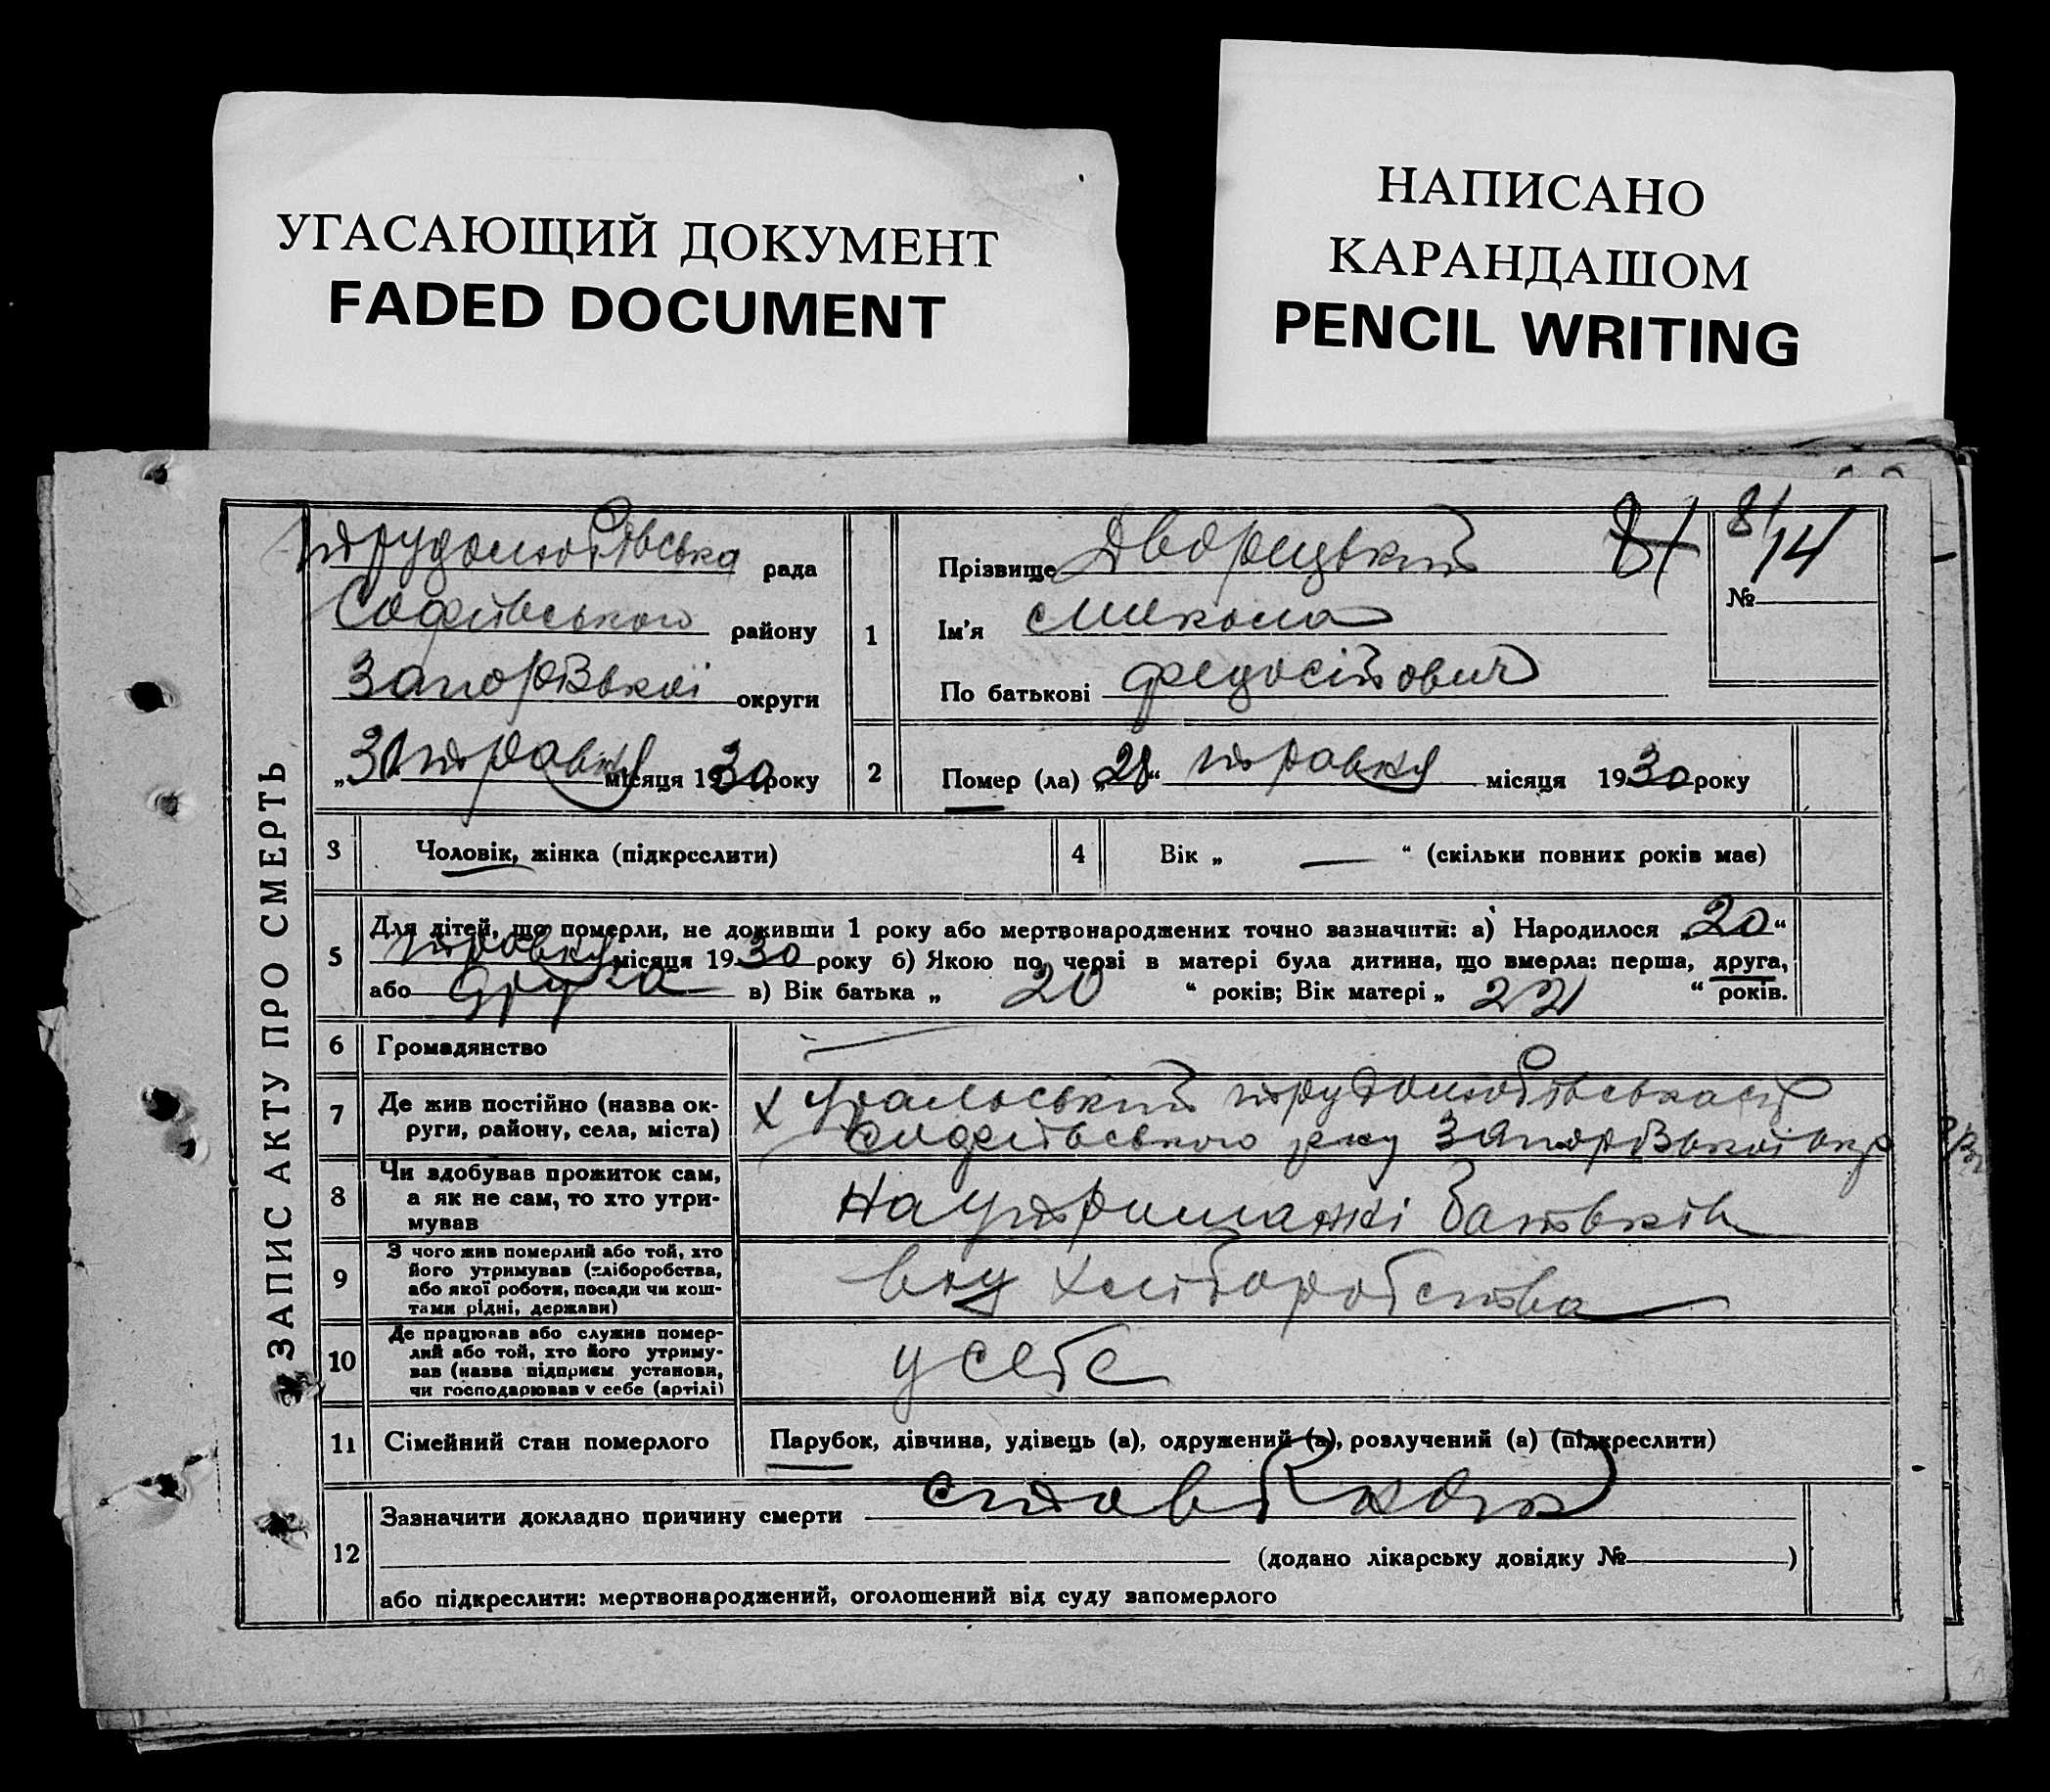 УГАСАЮЩИЙ ДОКУМЕНТ
FADED DOCUMENT
НАПИСАНО
КАРАНДАШОМ
PENCIL WRITING
ЗАПИС АКТУ ПРО СМЕРТЬ
Трудолюбівська рада
Софіївського району
Запорізької округи
„31 травня місяця 1930 року
1
Прізвище Дворецький
81
8/14
№
Ім'я Микола
По батькові Федосійович
2 Помер (ла) „28“ травня місяця 1930 року
3 Чоловік, жінка (підкреслити)
4 Вік „ — “ (скільки повних років має)
5 Для дітей, що померли, не доживши 1 року або мертвонароджених точно зазначити: а) Народилося „20“
травня місяця 1930 року б) Якою по черві в матері була дитина, що вмерла: перша, друга,
або друга в) Вік батька „ 20 “ років; Вік матері „ 22 “ років.
6 Громадянство —
7 Де жив постійно (назва ок-
руги, району, села, міста)
х Уральський Трудолюбівська с/р
Софіївського р-ну Запорізької окр
8 Чи здобував прожиток сам,
а як не сам, то хто утри-
мував
На утриманні батьків
9 З чого жив померлий або той, хто
його утримував (хліборобства,
або якої роботи, посади чи кош-
тами рідні, держави)
хліборобства
10 Де працював або служив помер-
лий або той, хто його утриму-
вав (назва підприєм установи,
чи господарював у себе (артілі)
у себе
11 Сімейний стан померлого
Парубок, дівчина, удівець (а), одружений (а), розлучений (а) (підкреслити)
12 Зазначити докладно причину смерти
(додано лікарську довідку № )
або підкреслити: мертвонароджений, оголошений від суду запомерлого